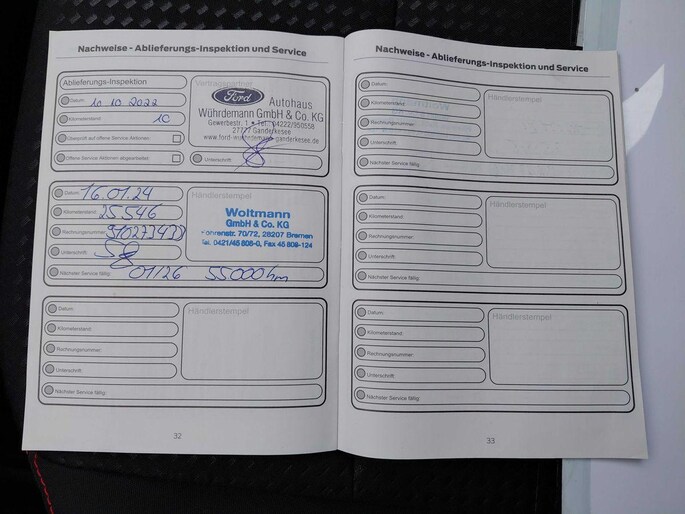 Nachweise - Ablieferungs-Inspektion und Service
Ablieferungs-Inspektion
Datum: 10 10.2022
Kilometerstand: 10
Überprüft auf offene Service Aktionen:
Offene Service Aktionen abgearbeitet:
Vertragspartner
Ford
Autohaus
Wührdemann GmbH & Co. KG
Gewerbestr. 1 • Tel. 04222/950556
27777 Ganderkesee
Unterschrift:
Datum: 16.01.24
Kilometerstand: 25.546
Rechnungsnummer:
Unterschrift:
Nächster Service fällig: 01/26 55000km
Händlerstempel
Woltmann
GmbH & Co. KG
70/72, 28207 Bremen
Tel. 0421/45 808-0, Fax 45 808-124
Datum:
Kilometerstand:
Rechnungsnummer:
Unterschrift:
Nächster Service fällig:
Händlerstempel
32
Nachweise - Ablieferungs-Inspektion und Service
Datum:
Kilometerstand:
Rechnungsnummer:
Unterschrift:
Nächster Service fällig:
Händlerstempel
Datum:
Kilometerstand:
Rechnungsnummer:
Unterschrift:
Nächster Service fällig:
Händlerstempel
Datum:
Kilometerstand:
Rechnungsnummer:
Unterschrift:
Nächster Service fällig:
Händlerstempel
33